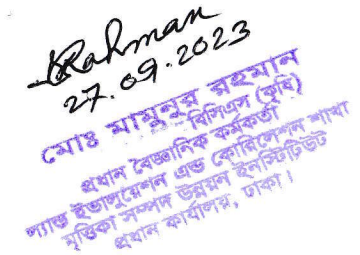 Rahman
27.09.2023
মোঃ মামুনুর রহমান
বিসিএস (কৃষি)
প্রধান বৈজ্ঞানিক কর্মকর্তা
ল্যান্ড ইভালুয়েশন এন্ড কোরিলেশন শাখা
মৃত্তিকা সম্পদ উন্নয়ন ইনস্টিটিউট
প্রধান কার্যালয়, ঢাকা।